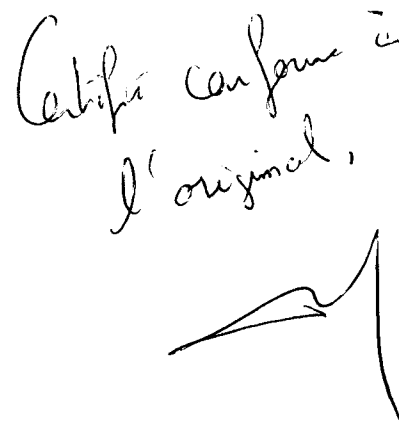 Certifié conforme à
l'original,